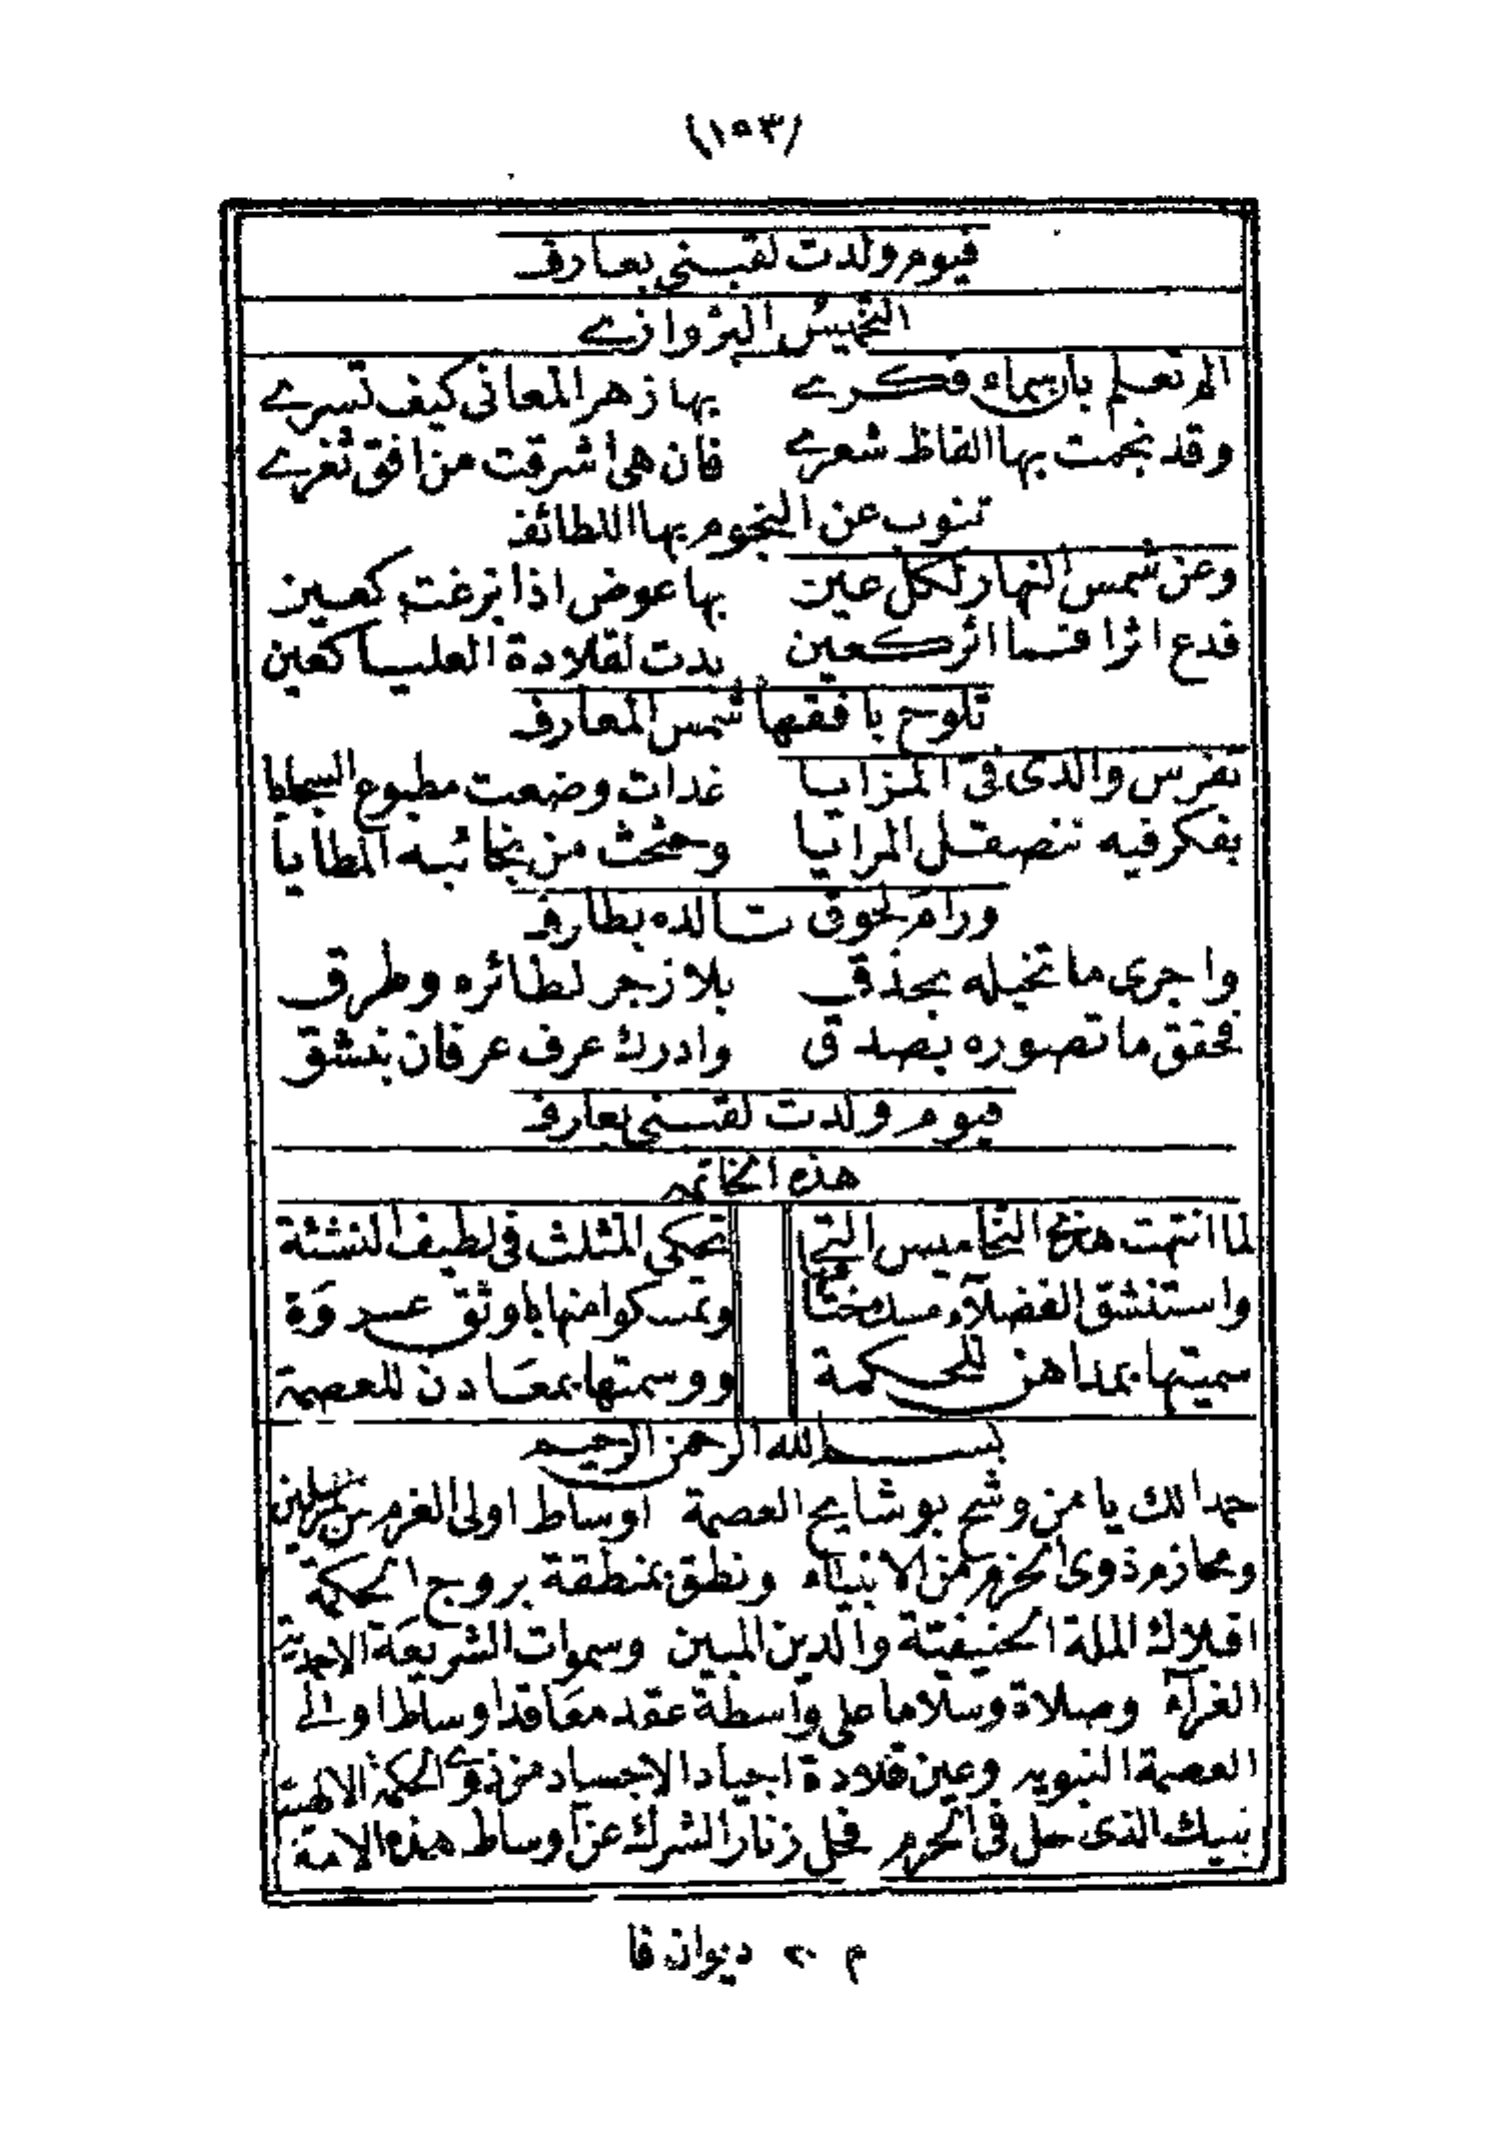 (١٥٣)
فيوم ولدت لقبني بعارف
التخميس البزوازے
الم تعلم بان سماء فكرے بها زهر المعانى كيف تسرے
وقد نجمت بها الفاظ شعرے فان هى اشرقت من افق ثغرے
تنوب عن النجوم بها اللطائف
وعن شمس النهار لكل عين بها عوض اذا بزغت كعين
فدع اثرا فما اثر كعين بدت لقلادة العليا كعين
تلوح بافقها شمس المعارف
تفرس والدى فيّ المزايا غدات وضعت مطبوع السجايا
بفكر فيه تنصقل المرايا وحثحث من نجائبه المطايا
ورام لحوق تالده بطارف
واجرى ما تخيله بحذق بلا زجر لطائره وطرق
فحقق ما تصوره بصدق وادرك عرف عرفان بنشق
فيوم ولدت لقبني بعارف
هذه الخاتمه
لما انتهت هذي التخاميس التي تحكى المثلث فى لطيف النشئة
واستنشق الفضلآء مسك ختامها وتمسكوا منها باوثق عروة
سميتها بمداهن للحكمة ووسمتها بمعادن للعصمة
بسم الله الرحمن الرحيم
حمدا لك يا من وشح بوشايح العصمة اوساط اولى العزم من المرسلين
ومحازم ذوى الحزم من الانبياء ونطق بمنطقة بروج الحكمة
افلاك الملة الحنيفية والدين المبين وسموات الشريعة الاحمدية
الغرآء وصلاة وسلاما على واسطة عقد معاقد اوساط اولے
العصمة النبويه وعين قلادة اجياد الاجساد من ذوے الحكمة الالهية
نبيك الذى حل فى الحرم فحل زنار الشرك عن اوساط هذه الامة
م ٢٠ ديوان فا